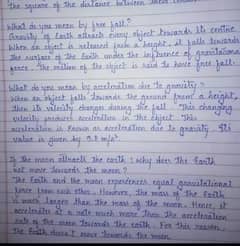 the square of the distance between their
What do you mean by free fall?
Gravity of Earth attracts every object towards its centre.
When an object is released from a height, it falls towards
the surface of the Earth under the influence of gravitational
force. The motion of the object is said to have free fall.
What do you mean by acceleration due to gravity?
When an object falls towards the ground from a height,
then its velocity changes during the fall. This changing
velocity produces acceleration in the object. This
acceleration is known as acceleration due to gravity. Its
value is given by 9.8 m/s²
If the moon attracts the earth, why does the Earth
not move towards the moon?
The Earth and the moon experiences equal gravitational
force from each other. However, the mass of the Earth
is much larger than the mass of the moon. Hence, it
accelerates at a rate much more than the acceleration
rate of the moon towards the earth. For this reason,
the Earth doesn't move towards the moon.